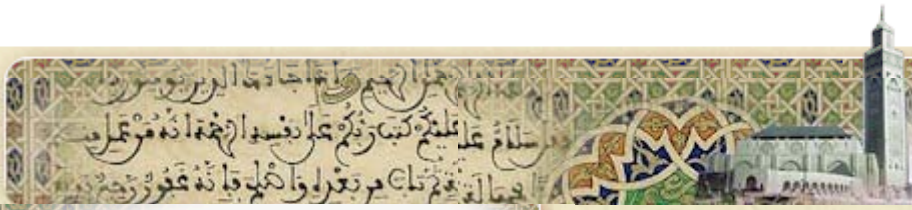 الرحمن الرحيم وإذا جاءك الذين يومنون
سلام عليكم كتب ربكم على نفسه الرحمة انه من عمل
بجهالة ثم تاب من بعده واصلح فانه غفور رحيم